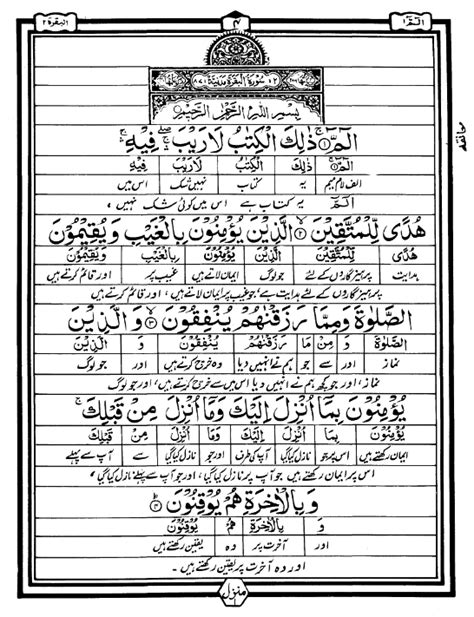 البقرة ٢ ٤ الۤمّۤ ١
سورة البقرة مدنية
بِسْمِ اللّٰهِ الرَّحْمٰنِ الرَّحِيْمِ
الٓمّٓ ۚ﴿١﴾ ذٰلِكَ الْكِتٰبُ لَا رَيْبَ ۛ فِيْهِ ۛ
الٓمّٓ ذٰلِكَ الْكِتٰبُ لَارَيْبَ فِيْهِ
الف لام میم یہ کتاب نہیں شک اس میں
الٓمّٓ یہ کتاب ہے اس میں کوئی شک نہیں ،
هُدًى لِّلْمُتَّقِيْنَ ﴿٢﴾ الَّذِيْنَ يُؤْمِنُوْنَ بِالْغَيْبِ وَيُقِيْمُوْنَ
هُدًى لِّلْمُتَّقِيْنَ الَّذِيْنَ يُؤْمِنُوْنَ بِالْغَيْبِ وَيُقِيْمُوْنَ
ہدایت پرہیزگاروں کے لئے جو لوگ ایمان لاتے ہیں غیب پر اور قائم کرتے ہیں
پرہیزگاروں کے لئے ہدایت ہے، جو غیب پر ایمان لاتے ہیں، اور قائم کرتے ہیں
الصَّلٰوةَ وَمِمَّا رَزَقْنٰهُمْ يُنْفِقُوْنَ ﴿٣﴾ وَالَّذِيْنَ
الصَّلٰوةَ وَ مِمَّا رَزَقْنٰهُمْ يُنْفِقُوْنَ وَ الَّذِيْنَ
نماز اور سے جو ہم نے انہیں دیا وہ خرچ کرتے ہیں اور جو لوگ
نماز، اور جو کچھ ہم نے انہیں دیا اس میں سے خرچ کرتے ہیں، اور جو لوگ
يُؤْمِنُوْنَ بِمَآ اُنْزِلَ اِلَيْكَ وَمَآ اُنْزِلَ مِنْ قَبْلِكَ ۚ
يُؤْمِنُوْنَ بِمَآ اُنْزِلَ اِلَيْكَ وَمَآ اُنْزِلَ مِنْ قَبْلِكَ
ایمان رکھتے ہیں اس پر جو نازل کیا گیا آپ کی طرف اور جو نازل کیا گیا سے آپ سے پہلے
اس پر ایمان رکھتے ہیں جو آپ پر نازل کیا گیا، اور جو آپ سے پہلے نازل کیا گیا،
وَبِالْاٰخِرَةِ هُمْ يُوْقِنُوْنَ ﴿٤﴾
وَ بِالْاٰخِرَةِ هُمْ يُوْقِنُوْنَ
اور آخرت پر وہ یقین رکھتے ہیں
اور وہ آخرت پر یقین رکھتے ہیں ۔
منزل ١